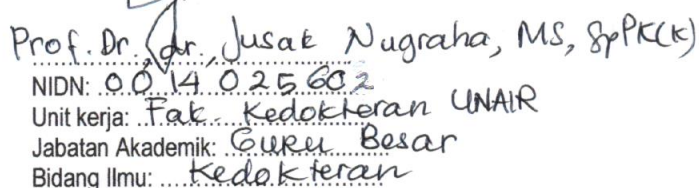 Prof. Dr. dr. Jusak Nugraha, MS, SpPK(K)
NIDN: 0014025602
Unit kerja: Fak. Kedokteran UNAIR
Jabatan Akademik: Guru Besar
Bidang Ilmu: Kedokteran